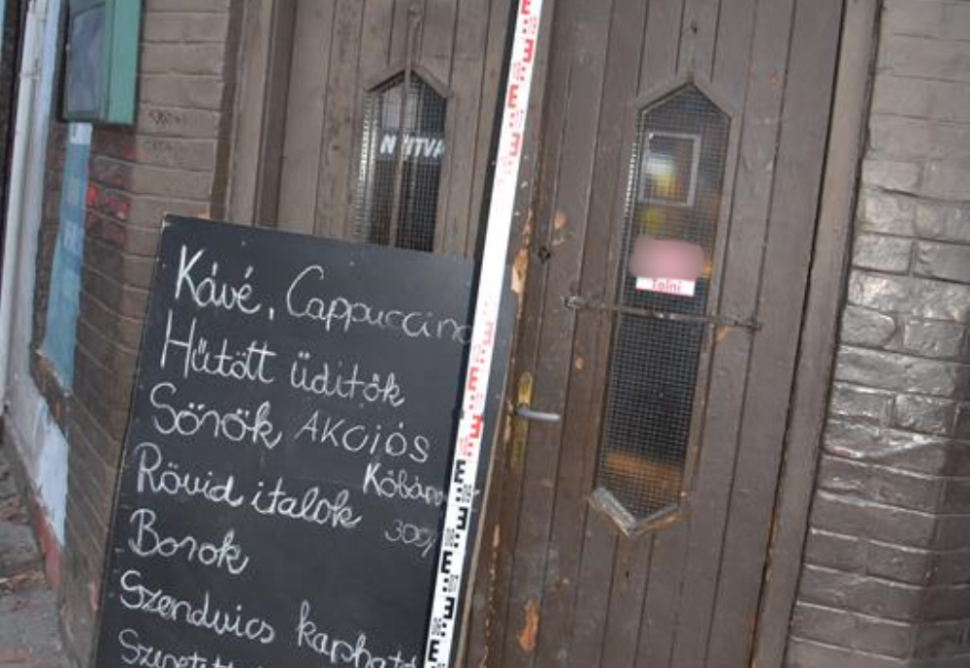 NYITVA
Tolni
Kávé, Cappuccino
Hűtött üdítők
Sörök AKCIÓS
Kőbán
Rövid italok 300
Borok
Szendvics kapható